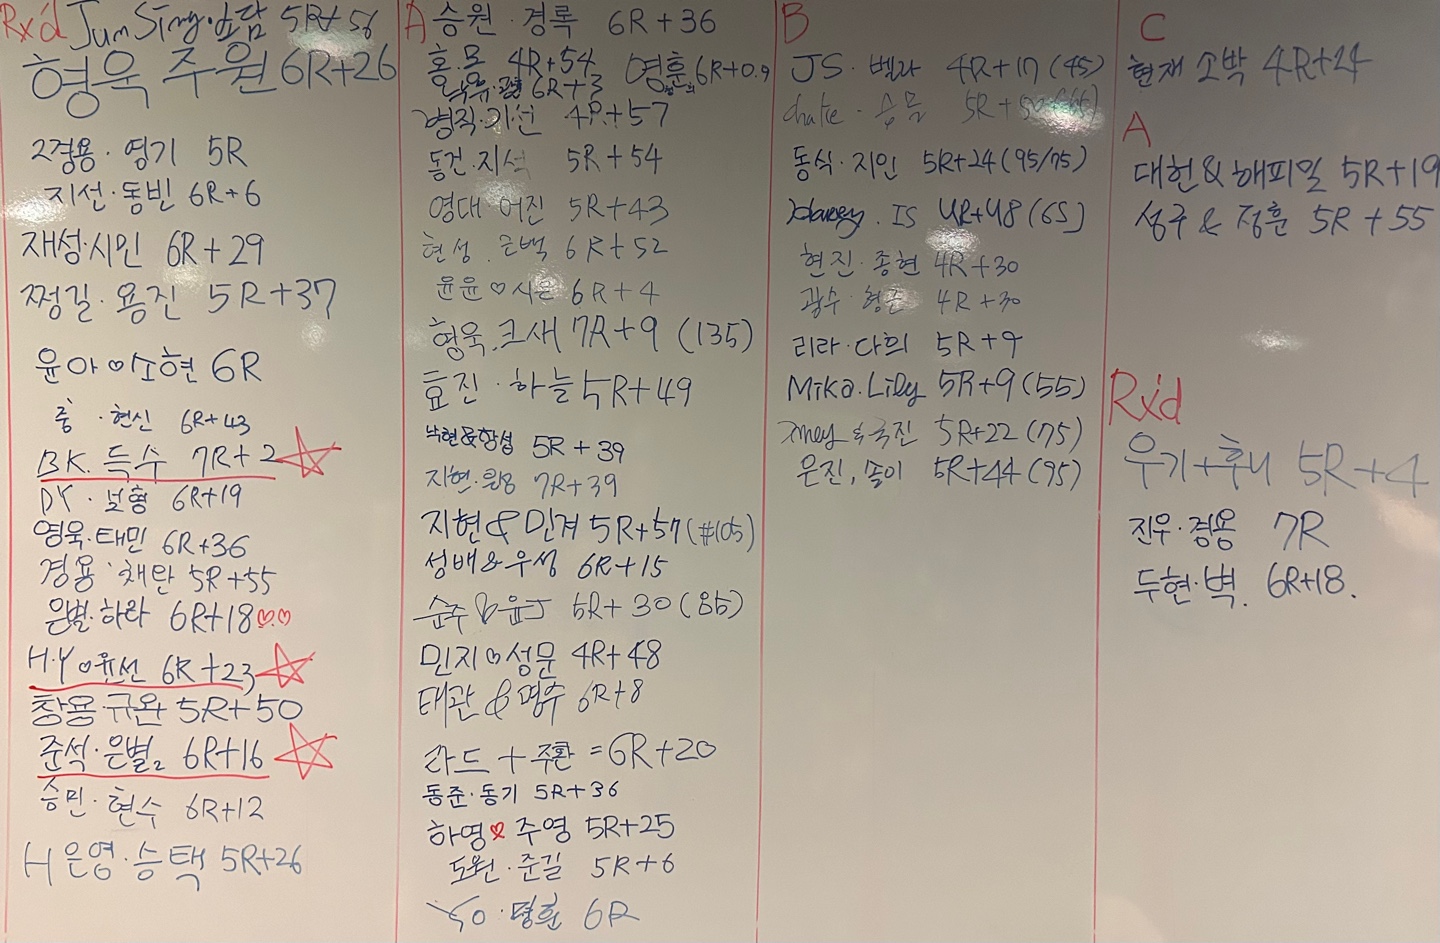 Rx'd
JumSing·소담 5R+56
형욱 주원 6R+26
2경용·영기 5R
지선·동빈 6R+6
재성·시민 6R+29
쩡길·용진 5R+37
윤아♡소현 6R
중·현신 6R+43
BK. 득수 7R+2
DY·보형 6R+19
영욱·태민 6R+36
경용·채란 5R+55
은별·하라 6R+18♡♡
H.Y♡윤선 6R+23
창용·규완 5R+50
준석·은별2 6R+16
승민·현수 6R+12
H은영·승택 5R+26
A
승원·경록 6R+36
홍.모 4R+54
6R+3
영훈 6R+0.9
병직·기선 4R+57
동건·지석 5R+54
영대 어진 5R+43
현성.은백 6R+52
윤윤♡시은 6R+4
형욱.크새 7R+9 (135)
효진·하늘 5R+49
5R+39
지현· 7R+39
지현&민계 5R+57(#105)
성배&우성 6R+15
순주&윤J 5R+30(85)
민지♡성문 4R+48
태관&명수 6R+8
라드+주환=6R+20
동준·동기 5R+36
하영♡주영 5R+25
도원·준길 5R+6
명훈 6R
B
JS·벨라 4R+17(45)
5R+50
동식·지인 5R+24(95/75)
Harvey.IS 4R+48(65)
현진·종현 4R+30
광수·형준 4R+30
리라·다희 5R+9
Mika.Lily 5R+9(55)
5R+22(75)
은진,솔이 5R+44(95)
C
현재 소박 4R+24
A
대헌&해피밀 5R+19
성구&정훈 5R+55
Rx'd
우기+후니 5R+4
진우·경용 7R
두현·벽. 6R+18.